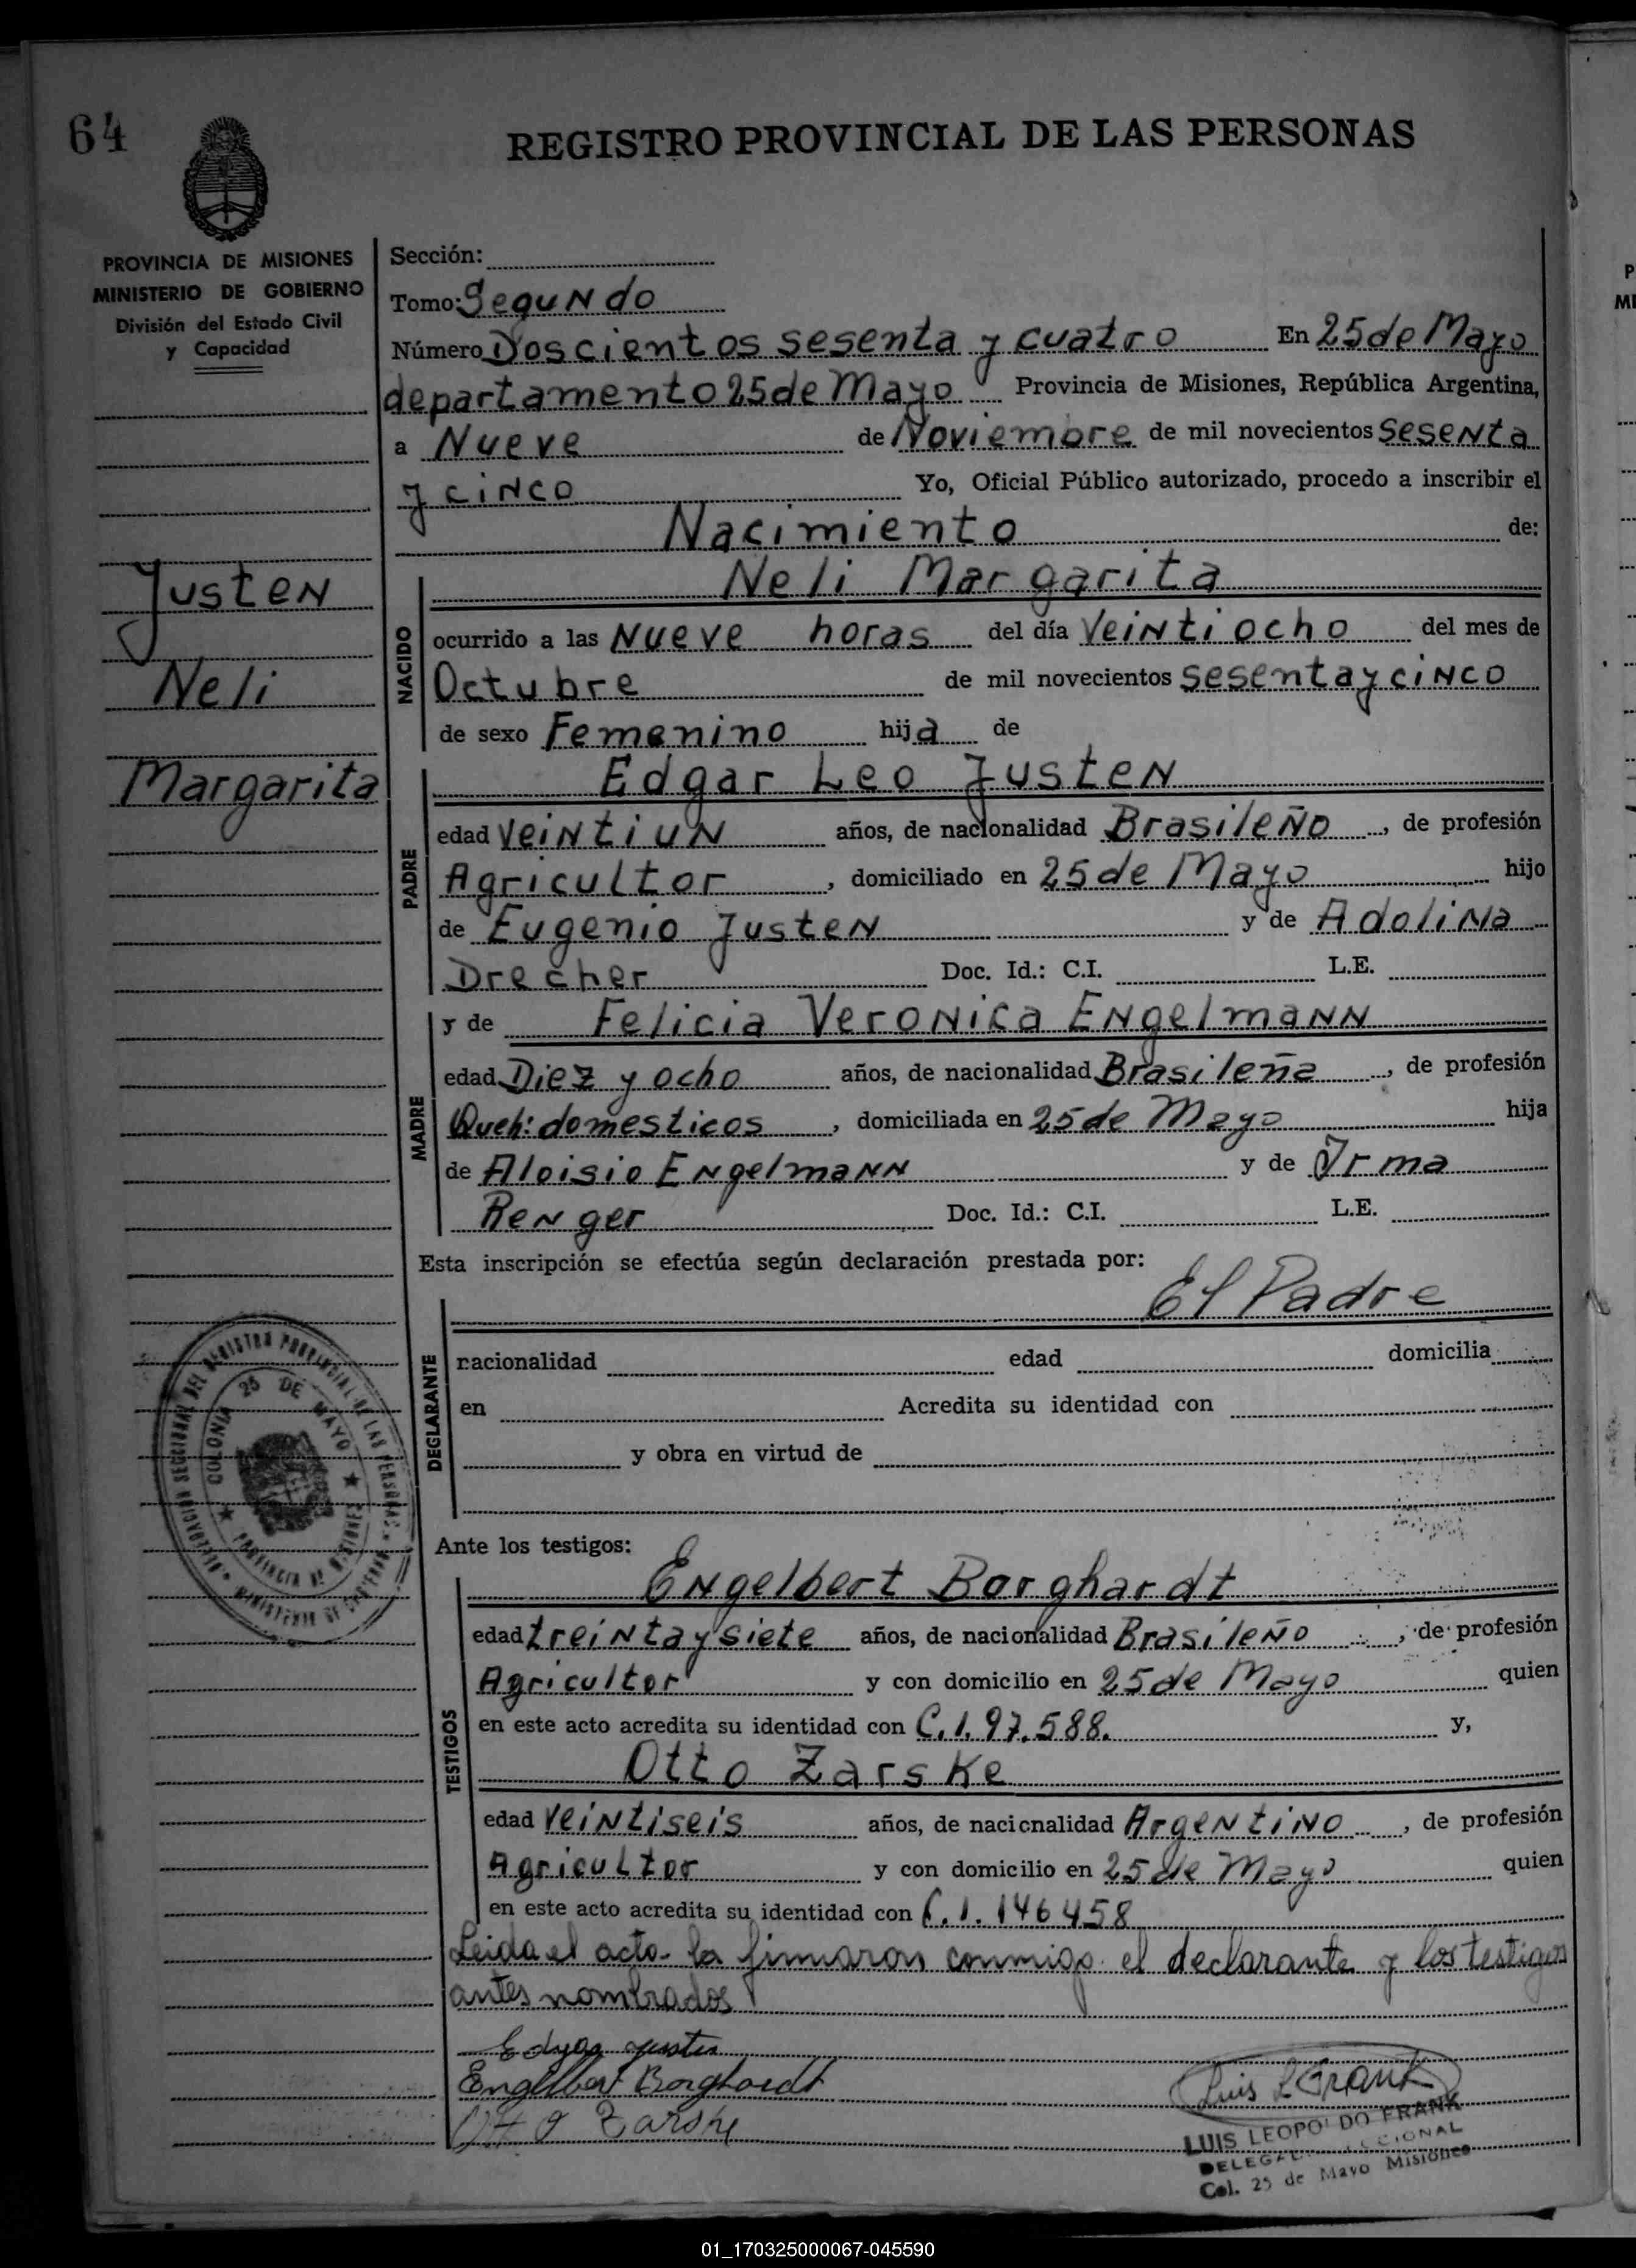 64
REGISTRO PROVINCIAL DE LAS PERSONAS
PROVINCIA DE MISIONES
MINISTERIO DE GOBIERNO
División del Estado Civil
y Capacidad
Justen
Neli
Margarita
Sección:
Tomo: Segundo
Número Doscientos sesenta y cuatro En 25 de Mayo
departamento 25 de Mayo Provincia de Misiones, República Argentina,
a Nueve de Noviembre de mil novecientos sesenta
y cinco Yo, Oficial Público autorizado, procedo a inscribir el
Nacimiento de:
Neli Margarita
NACIDO
ocurrido a las Nueve horas del día Veintiocho del mes de
Octubre de mil novecientos sesenta y cinco
de sexo Femenino hija de
Edgar Leo Justen
PADRE
edad veintiun años, de nacionalidad Brasileño, de profesión
Agricultor, domiciliado en 25 de Mayo hijo
de Eugenio Justen y de Adolina
Drecher Doc. Id.: C.I. L.E.
y de Felicia Veronica Engelmann
MADRE
edad Diez y ocho años, de nacionalidad Brasileña, de profesión
Queh: domesticos, domiciliada en 25 de Mayo hija
de Aloisio Engelmann y de Irma
Renger Doc. Id.: C.I. L.E.
Esta inscripción se efectúa según declaración prestada por:
El Padre
DECLARANTE
nacionalidad edad domicilia
en Acredita su identidad con
y obra en virtud de
Ante los testigos:
Engelbert Borghardt
TESTIGOS
edad treinta y siete años, de nacionalidad Brasileño, de profesión
Agricultor y con domicilio en 25 de Mayo quien
en este acto acredita su identidad con C.I. 97.588. y,
Otto Zarske
edad veintiseis años, de nacionalidad Argentino, de profesión
Agricultor y con domicilio en 25 de Mayo quien
en este acto acredita su identidad con C.I. 146458
Leida el acto la firmaron conmigo el declarante y los testigos
antes nombrados
Edgar Justen
Engelbert Borghardt
Otto Zarske
Luis L Frank
LUIS LEOPOLDO FRANK
Col. 25 de Mayo Misiones
COLONIA 25 DE MAYO
PROVINCIA DE MISIONES
DEL REGISTRO PROVINCIAL DE LAS PERSONAS
MINISTERIO DE GOBIERNO
01_170325000067-045590